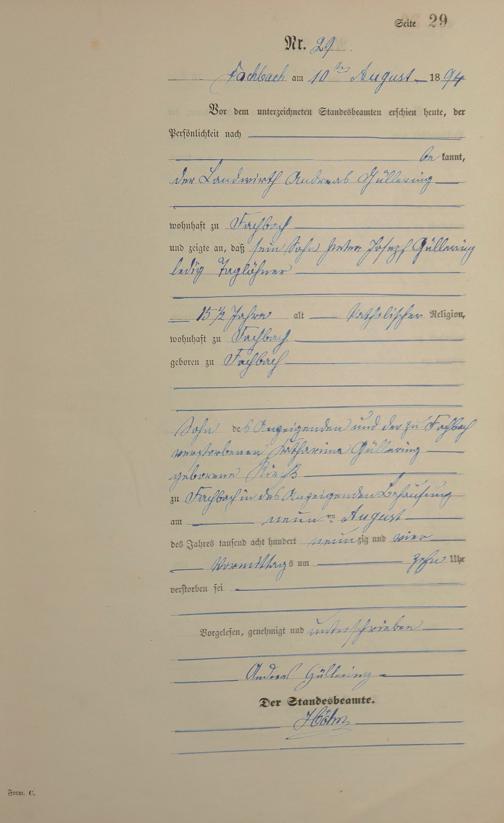 Seite 29
Nr. 29.
Fachbach am 10ten August 1894
Vor dem unterzeichneten Standesbeamten erschien heute, der
Persönlichkeit nach
be kannt,
der Landwirth Andreas Güllering
wohnhaft zu Fachbach
und zeigte an, daß sein Sohn Peter Joseph Güllering
ledig Taglöhner
15 1/2 Jahre alt katholischer Religion,
wohnhaft zu Fachbach
geboren zu Fachbach
Sohn des Anzeigenden und der zu Fachbach
verstorbenen Katharina Güllering
geborene
zu Fachbach in des Anzeigenden Behausung
am neunten August
des Jahres tausend acht hundert neunzig und vier
Vormittags um zehn Uhr
verstorben sei
Vorgelesen, genehmigt und unterschrieben
Andreas Güllering
Der Standesbeamte.
Höhn
Form. C.